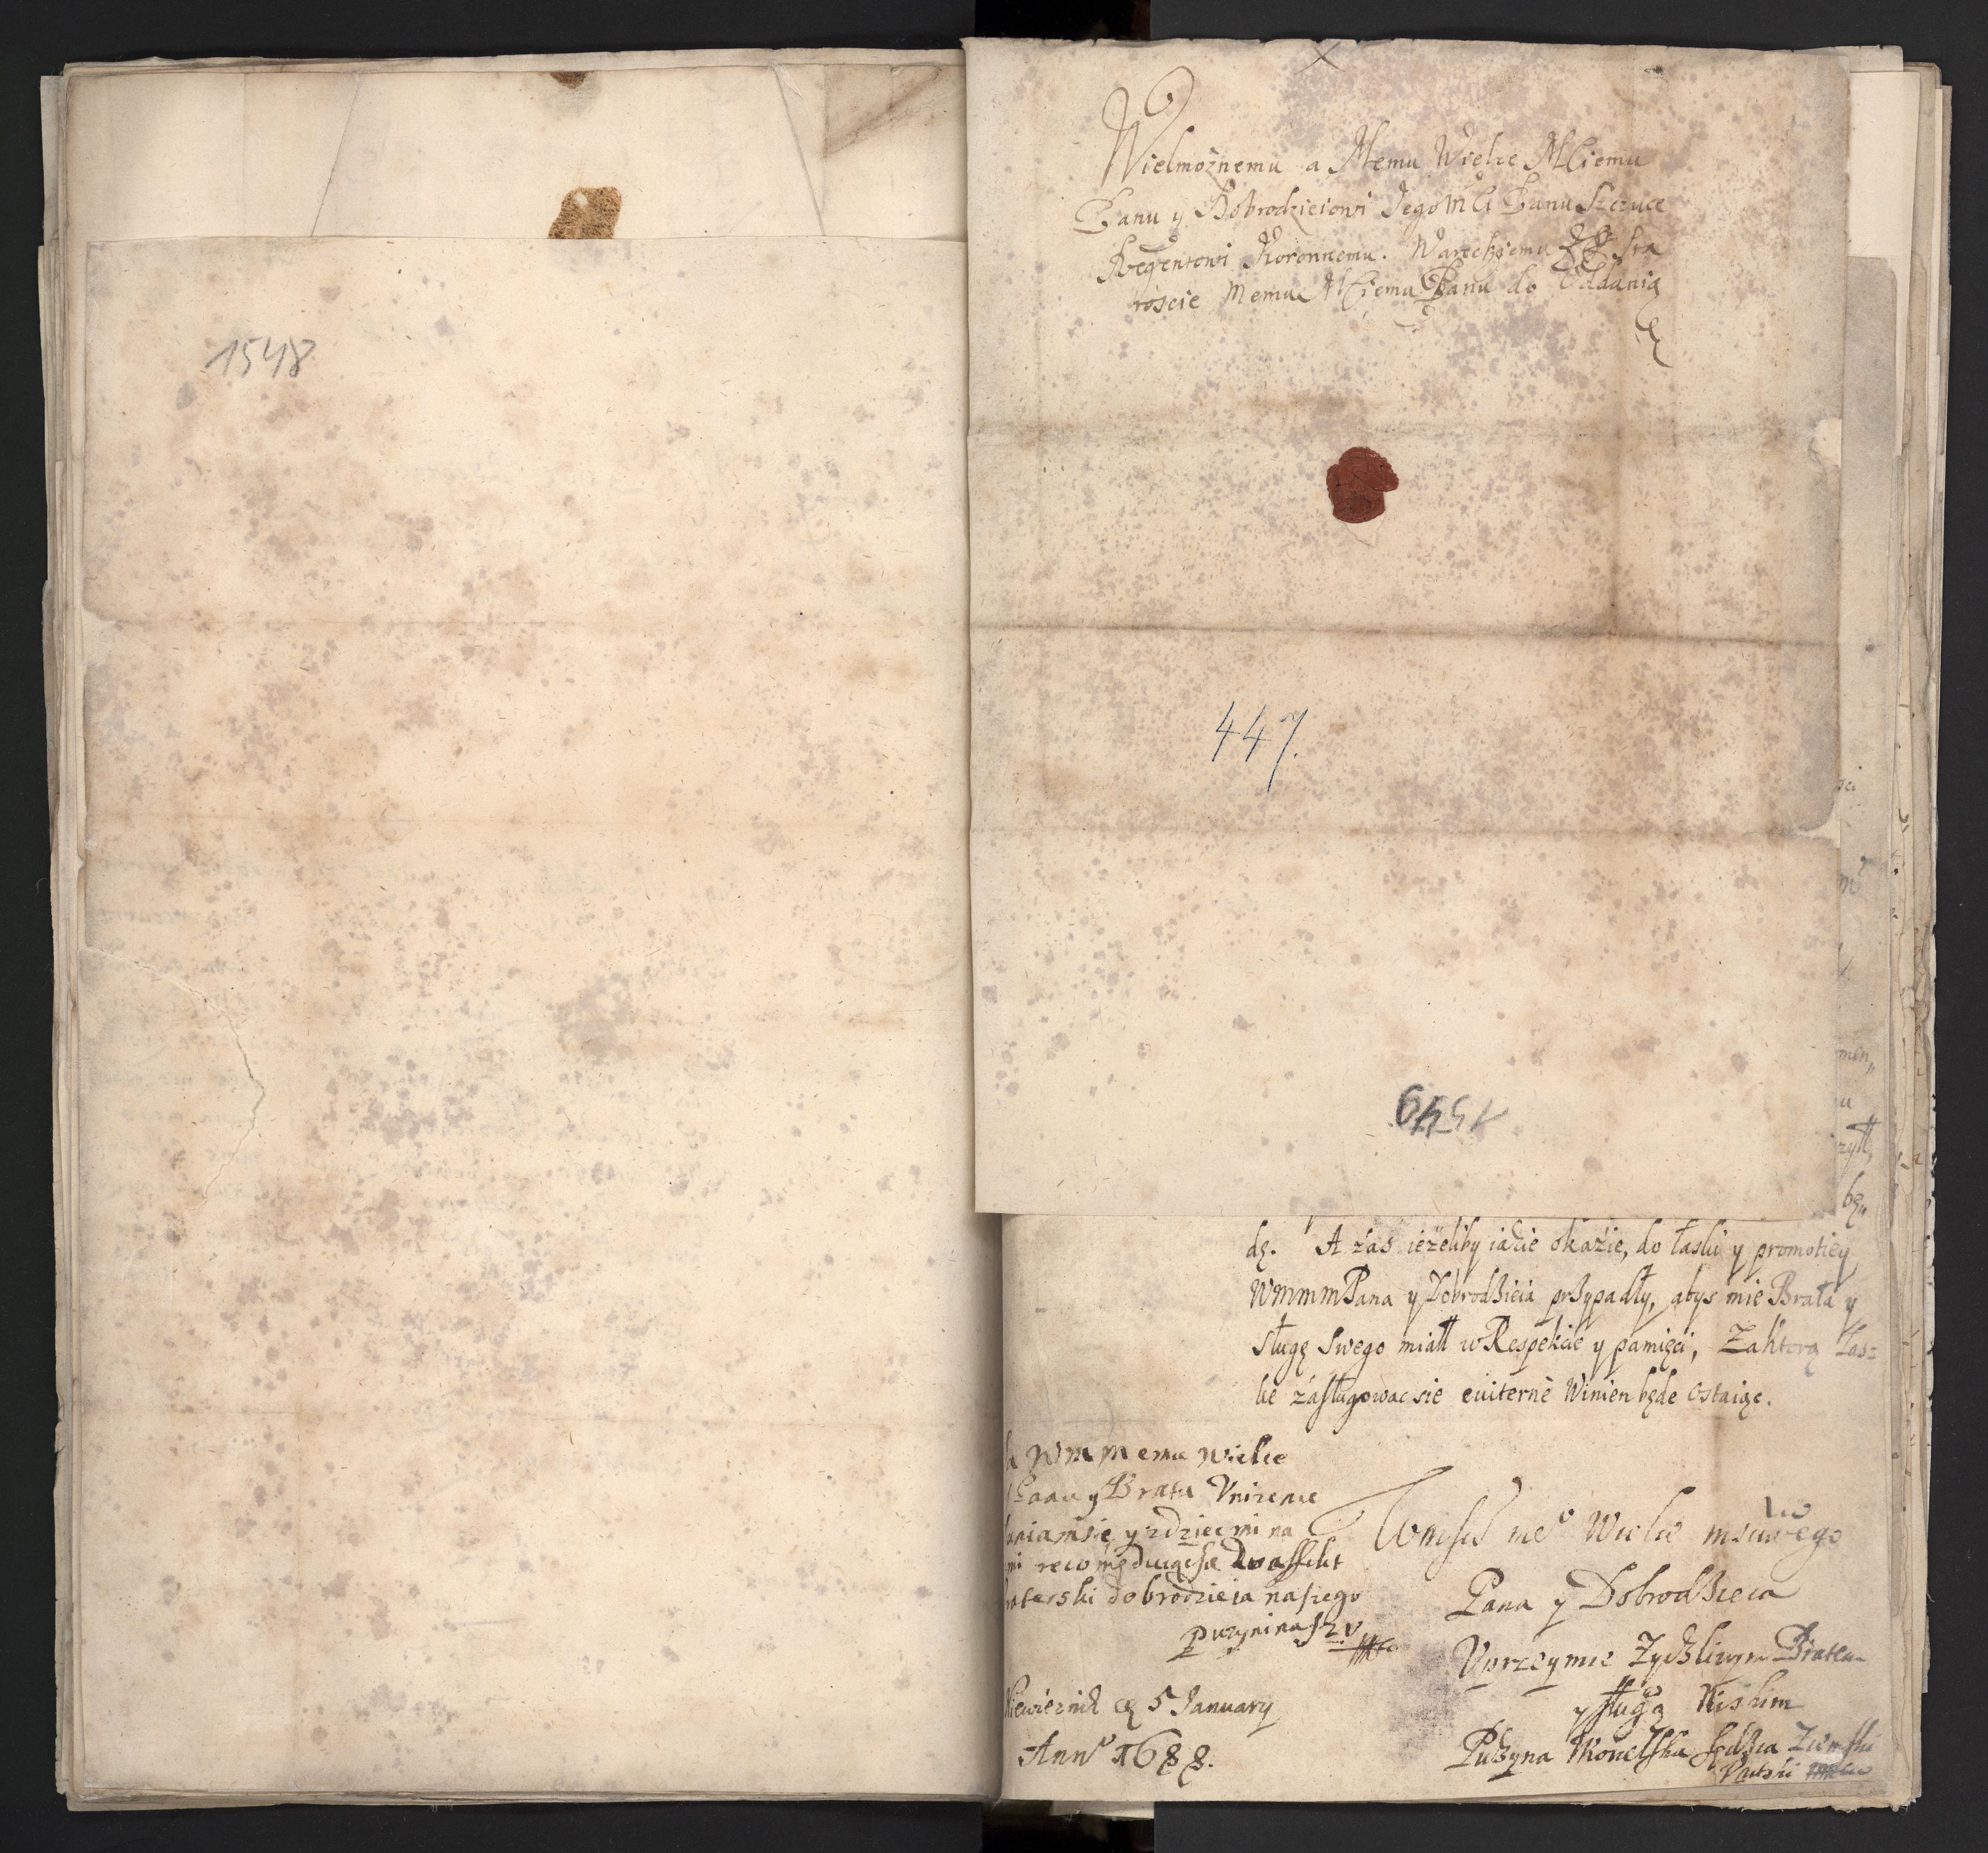 1548
Wielmożnemu a Memu Wielce MCiemu
Panu y Dobrodzieiowi Jego Mści Panu Szczuce
Regentowi Koronnemu. Wareckiemu Sta
roscie Memu MCiemu Panu do Oddania
447.
1549
bę„
dę. A zas ieżeliby iakie okazie, do łaski y promotiey
WmmmPana y Dobrodzieia przypadły, abys mie Brata y
sługę swego miałł w Respekcie y pamięci, Zaktorą łas=
ke zasługowac sie euiternè Winien będe ostaiąc.
Wm memu wielce
Panu y Bratu Vnizenie
kłaniam się y z dziecmi na
recomęduiąc sie
dobrodzieia naszego
Puzynina
5 January
Ann° 1688.
Wielce
Pana y Dobrodzieia
Vprzeymie Zyczliwym Bratem
y sługą Niskim
Puzyna Sędzia Ziemski